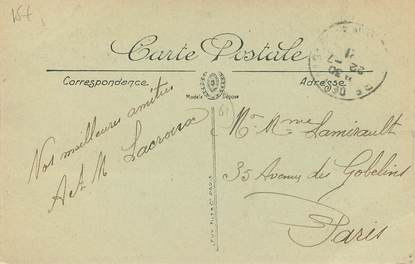 15f
Carte Postale
Correspondance
Adresse
Modèle Déposé
Nos meilleures amitiés
A et M Lacroix
Mr Mme Lamirault
35 Avenue des Gobelins
Paris